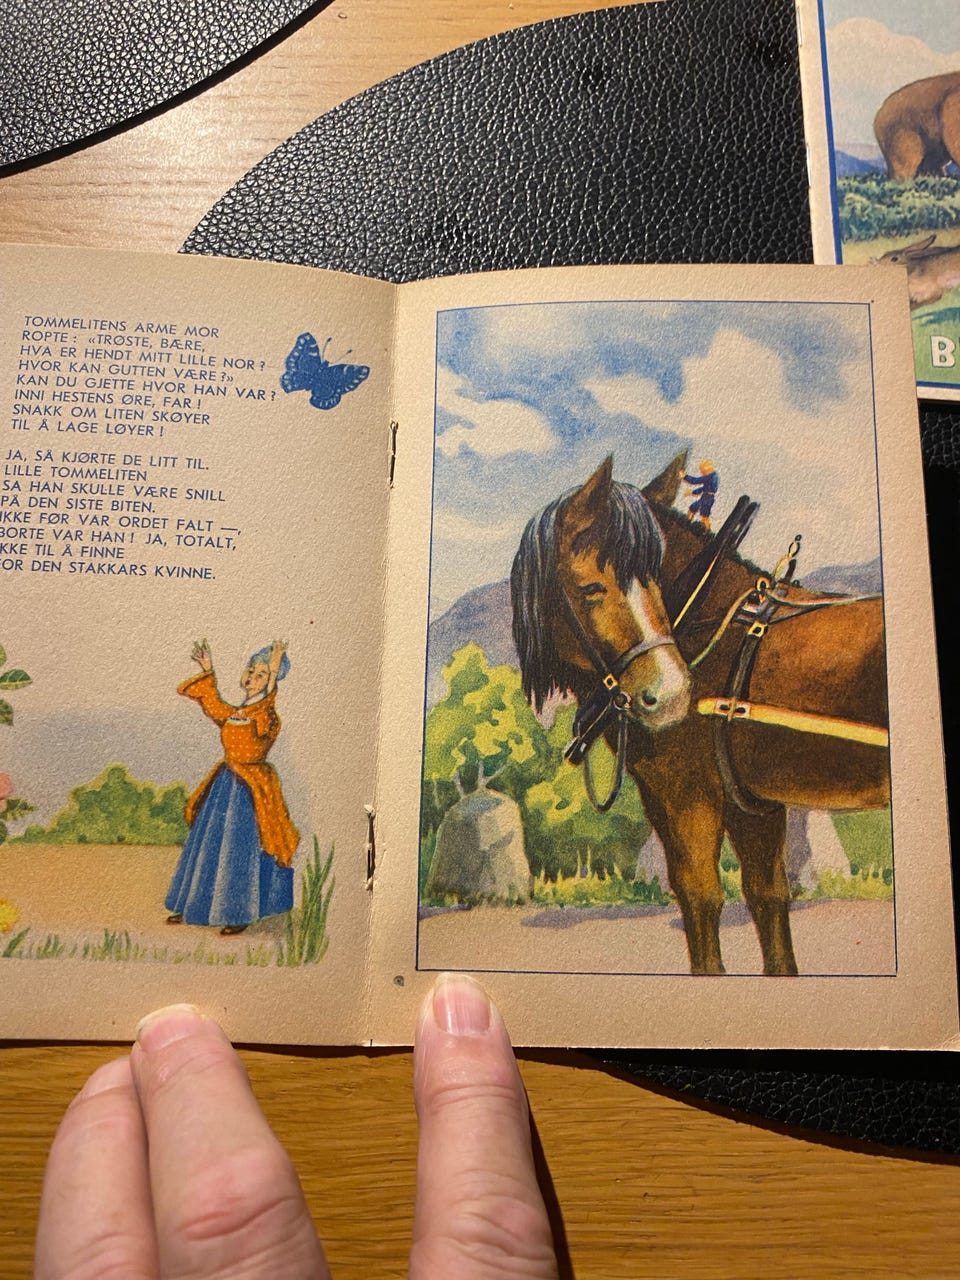 TOMMELITENS ARME MOR
ROPTE: «TRØSTE, BÆRE,
HVA ER HENDT MITT LILLE NOR?
HVOR KAN GUTTEN VÆRE?»
KAN DU GJETTE HVOR HAN VAR?
INNI HESTENS ØRE, FAR!
SNAKK OM LITEN SKØYER
TIL Å LAGE LØYER!
JA, SÅ KJØRTE DE LITT TIL.
LILLE TOMMELITEN
SA HAN SKULLE VÆRE SNILL
PÅ DEN SISTE BITEN.
IKKE FØR VAR ORDET FALT —,
BORTE VAR HAN! JA, TOTALT,
KKE TIL Å FINNE
OR DEN STAKKARS KVINNE.
B